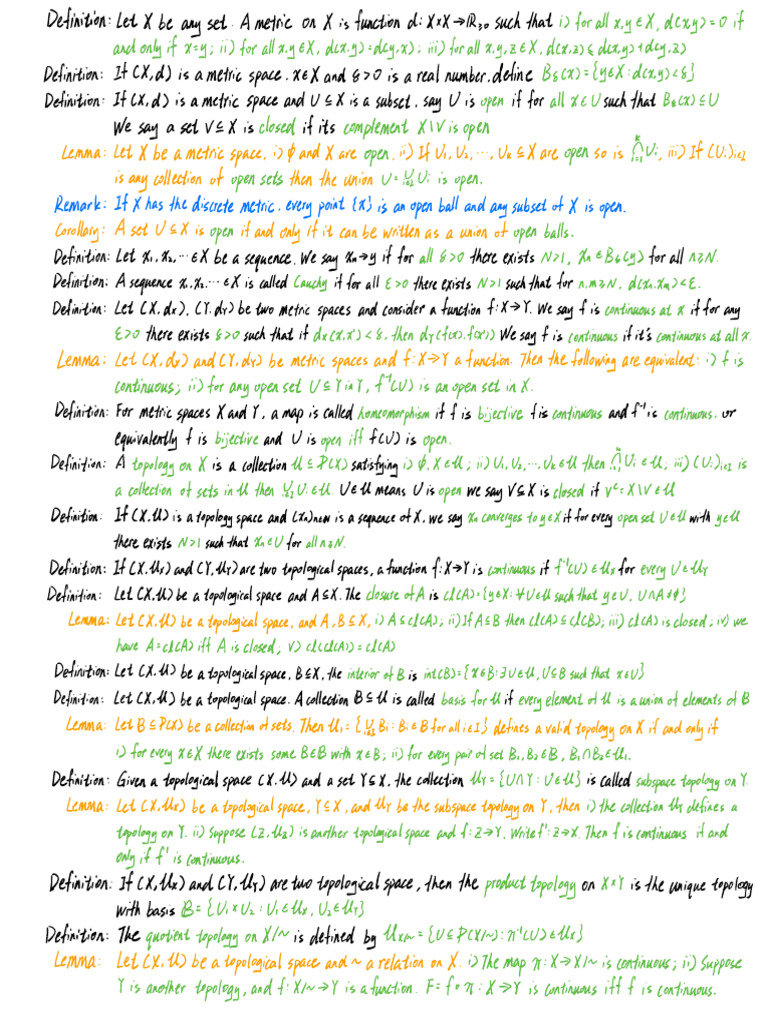 Definition: Let X be any set. A metric on X is function d: X×X→ℝ≥0 such that i) for all x,y∈X, d(x,y)=0 if
and only if x=y; ii) for all x,y∈X, d(x,y)=d(y,x); iii) for all x,y,z∈X, d(x,z)≤d(x,y)+d(y,z)
Definition: If (X,d) is a metric space, x∈X and δ>0 is a real number, define Bδ(x)={y∈X: d(x,y)<δ}
Definition: If (X,d) is a metric space and U⊆X is a subset, say U is open if for all x∈U such that Bδ(x)⊆U
We say a set V⊆X is closed if its complement X\V is open
Lemma: Let X be a metric space, i) ∅ and X are open, ii) If U₁, U₂, ⋯, Uₖ⊆X are open so is ⋂ᵢ₌₁ᵏ Uᵢ, iii) If (Uᵢ)ᵢ∈I
is any collection of open sets then the union U=⋃ᵢ∈I Uᵢ is open.
Remark: If X has the discrete metric, every point {x} is an open ball and any subset of X is open.
Corollory: A set U⊆X is open if and only if it can be written as a union of open balls.
Definition: Let x₁,x₂,⋯∈X be a sequence. We say xₙ→y if for all δ>0 there exists N≥1, xₙ∈Bδ(y) for all n≥N.
Definition: A sequence x₁,x₂,⋯∈X is called Cauchy if for all ε>0 there exists N≥1 such that for n,m≥N, d(xₙ,xₘ)<ε.
Definition: Let (X,dx), (Y,dY) be two metric spaces and consider a function f:X→Y. We say f is continuous at x if for any
ε>0 there exists δ>0 such that if dx(x,x')<δ, then dY(f(x),f(x')) We say f is continuous if it's continuous at all x.
Lemma: Let (X,dx) and (Y,dY) be metric spaces and f:X→Y a function. Then the following are equivalent: i) f is
continuous; ii) for any open set U⊆Y in Y, f⁻¹(U) is an open set in X.
Definition: For metric spaces X and Y, a map is called homeomorphism if f is bijective f is continuous and f⁻¹ is continuous. or
equivalently f is bijective and U is open iff f(U) is open.
Definition: A topology on X is a collection 𝒰⊆P(X) satisfying i) ∅,X∈𝒰; ii) U₁,U₂,⋯,Uₙ∈𝒰 then ⋂ᵢ₌₁ⁿ Uᵢ∈𝒰, iii) (Uᵢ)ᵢ∈I is
a collection of sets in 𝒰 then ⋃ᵢ∈I Uᵢ∈𝒰. U∈𝒰 means U is open we say V⊆X is closed if Vᶜ=X\V∈𝒰
Definition: If (X,𝒰) is a topology space and (xₙ)n∈ℕ is a sequence of X, we say xₙ converges to y∈X if for every open set U∈𝒰 with y∈U
there exists N≥1 such that xₙ∈U for all n≥N.
Definition: If (X,𝒰x) and (Y,𝒰Y) are two topological spaces, a function f:X→Y is continuous if f⁻¹(U)∈𝒰x for every U∈𝒰Y
Definition: Let (X,𝒰) be a topological space and A⊆X. The closure of A is cl(A)={y∈X: ∀U∈𝒰 such that y∈U, U∩A≠∅}
Lemma: Let (X,𝒰) be a topological space, and A,B⊆X, i) A⊆cl(A); ii) If A⊆B then cl(A)⊆cl(B); iii) cl(A) is closed; iv) we
have A=cl(A) iff A is closed, v) cl(cl(A))=cl(A)
Definition: Let (X,𝒰) be a topological space, B⊆X, the interior of B is int(B)={x∈B: ∃U∈𝒰, U⊆B such that x∈U}
Definition: Let (X,𝒰) be a topological space. A collection B⊆𝒰 is called basis for 𝒰 if every element of 𝒰 is a union of elements of B
Lemma: Let B⊆P(X) be a collection of sets. Then 𝒰₁={⋃ᵢ∈I Bᵢ: Bᵢ∈B for all i∈I} defines a valid topology on X if and only if
i) for every x∈X there exists some B∈B with x∈B; ii) for every pair of set B₁,B₂∈B, B₁∩B₂∈𝒰₁.
Definition: Given a topological space (X,𝒰) and a set Y⊆X, the collection 𝒰Y={U∩Y: U∈𝒰} is called subspace topology on Y.
Lemma: Let (X,𝒰x) be a topological space, Y⊆X, and 𝒰Y be the subspace topology on Y, then i) the collection 𝒰Y defines a
topology on Y. ii) suppose (Z,𝒰z) is another topological space and f:Z→Y. Write f':Z→X. Then f is continuous if and
only if f' is continuous.
Definition: If (X,𝒰x) and (Y,𝒰Y) are two topological space, then the product topology on X×Y is the unique topology
with basis B={U₁×U₂: U₁∈𝒰x, U₂∈𝒰Y}
Definition: The quotient topology on X/~ is defined by 𝒰x/~={U⊆P(X/~): π⁻¹(U)∈𝒰x}
Lemma: Let (X,𝒰) be a topological space and ~ a relation on X. i) The map π:X→X/~ is continuous; ii) Suppose
Y is another topology, and f:X/~→Y is a function. F=f∘π:X→Y is continuous iff f is continuous.